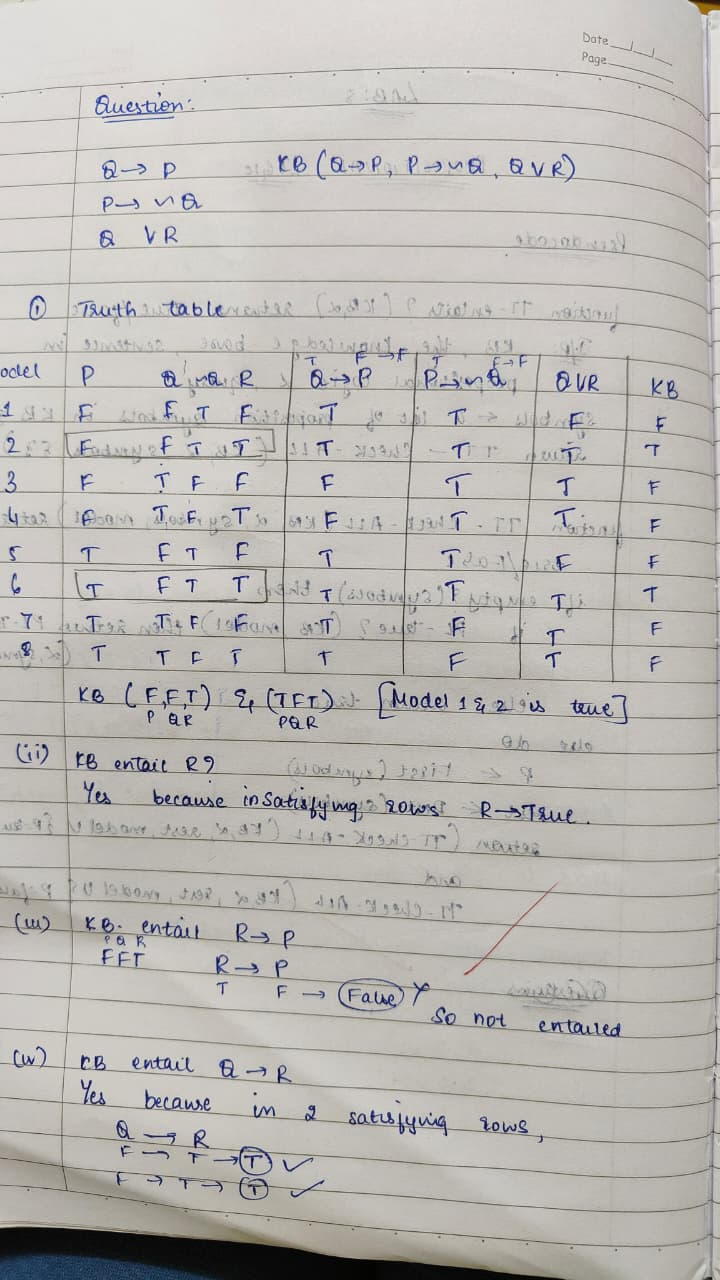 Date
Page
Question:
Q → P KB (Q→P, P→~Q, Q∨R)
P → ~Q
Q ∨R
① Truth table
T F→F T F→F
odel P Q ~Q R Q→P P→~Q Q∨R KB
1 F F T F T T F F
2 F F T T T T T T
3 F T F F F T T F
4 F T F T F T T F
5 T F T F T T F F
6 T F T T T T T T
7 T T F F T F T F
8 T T F T T F T F
KB (F,F,T) & (TFT) [Model 1 & 2 is true]
P QR PQR
(ii) KB entail R?
Yes because in satisfying rows R→True.
(iii) KB. entail R→ P
P Q R
FFT R → P
T F → False
So not entailed
(iv) KB entail Q → R
Yes because in 2 satisfying rows,
Q → R
F → T → T ✓
F → T → T ✓